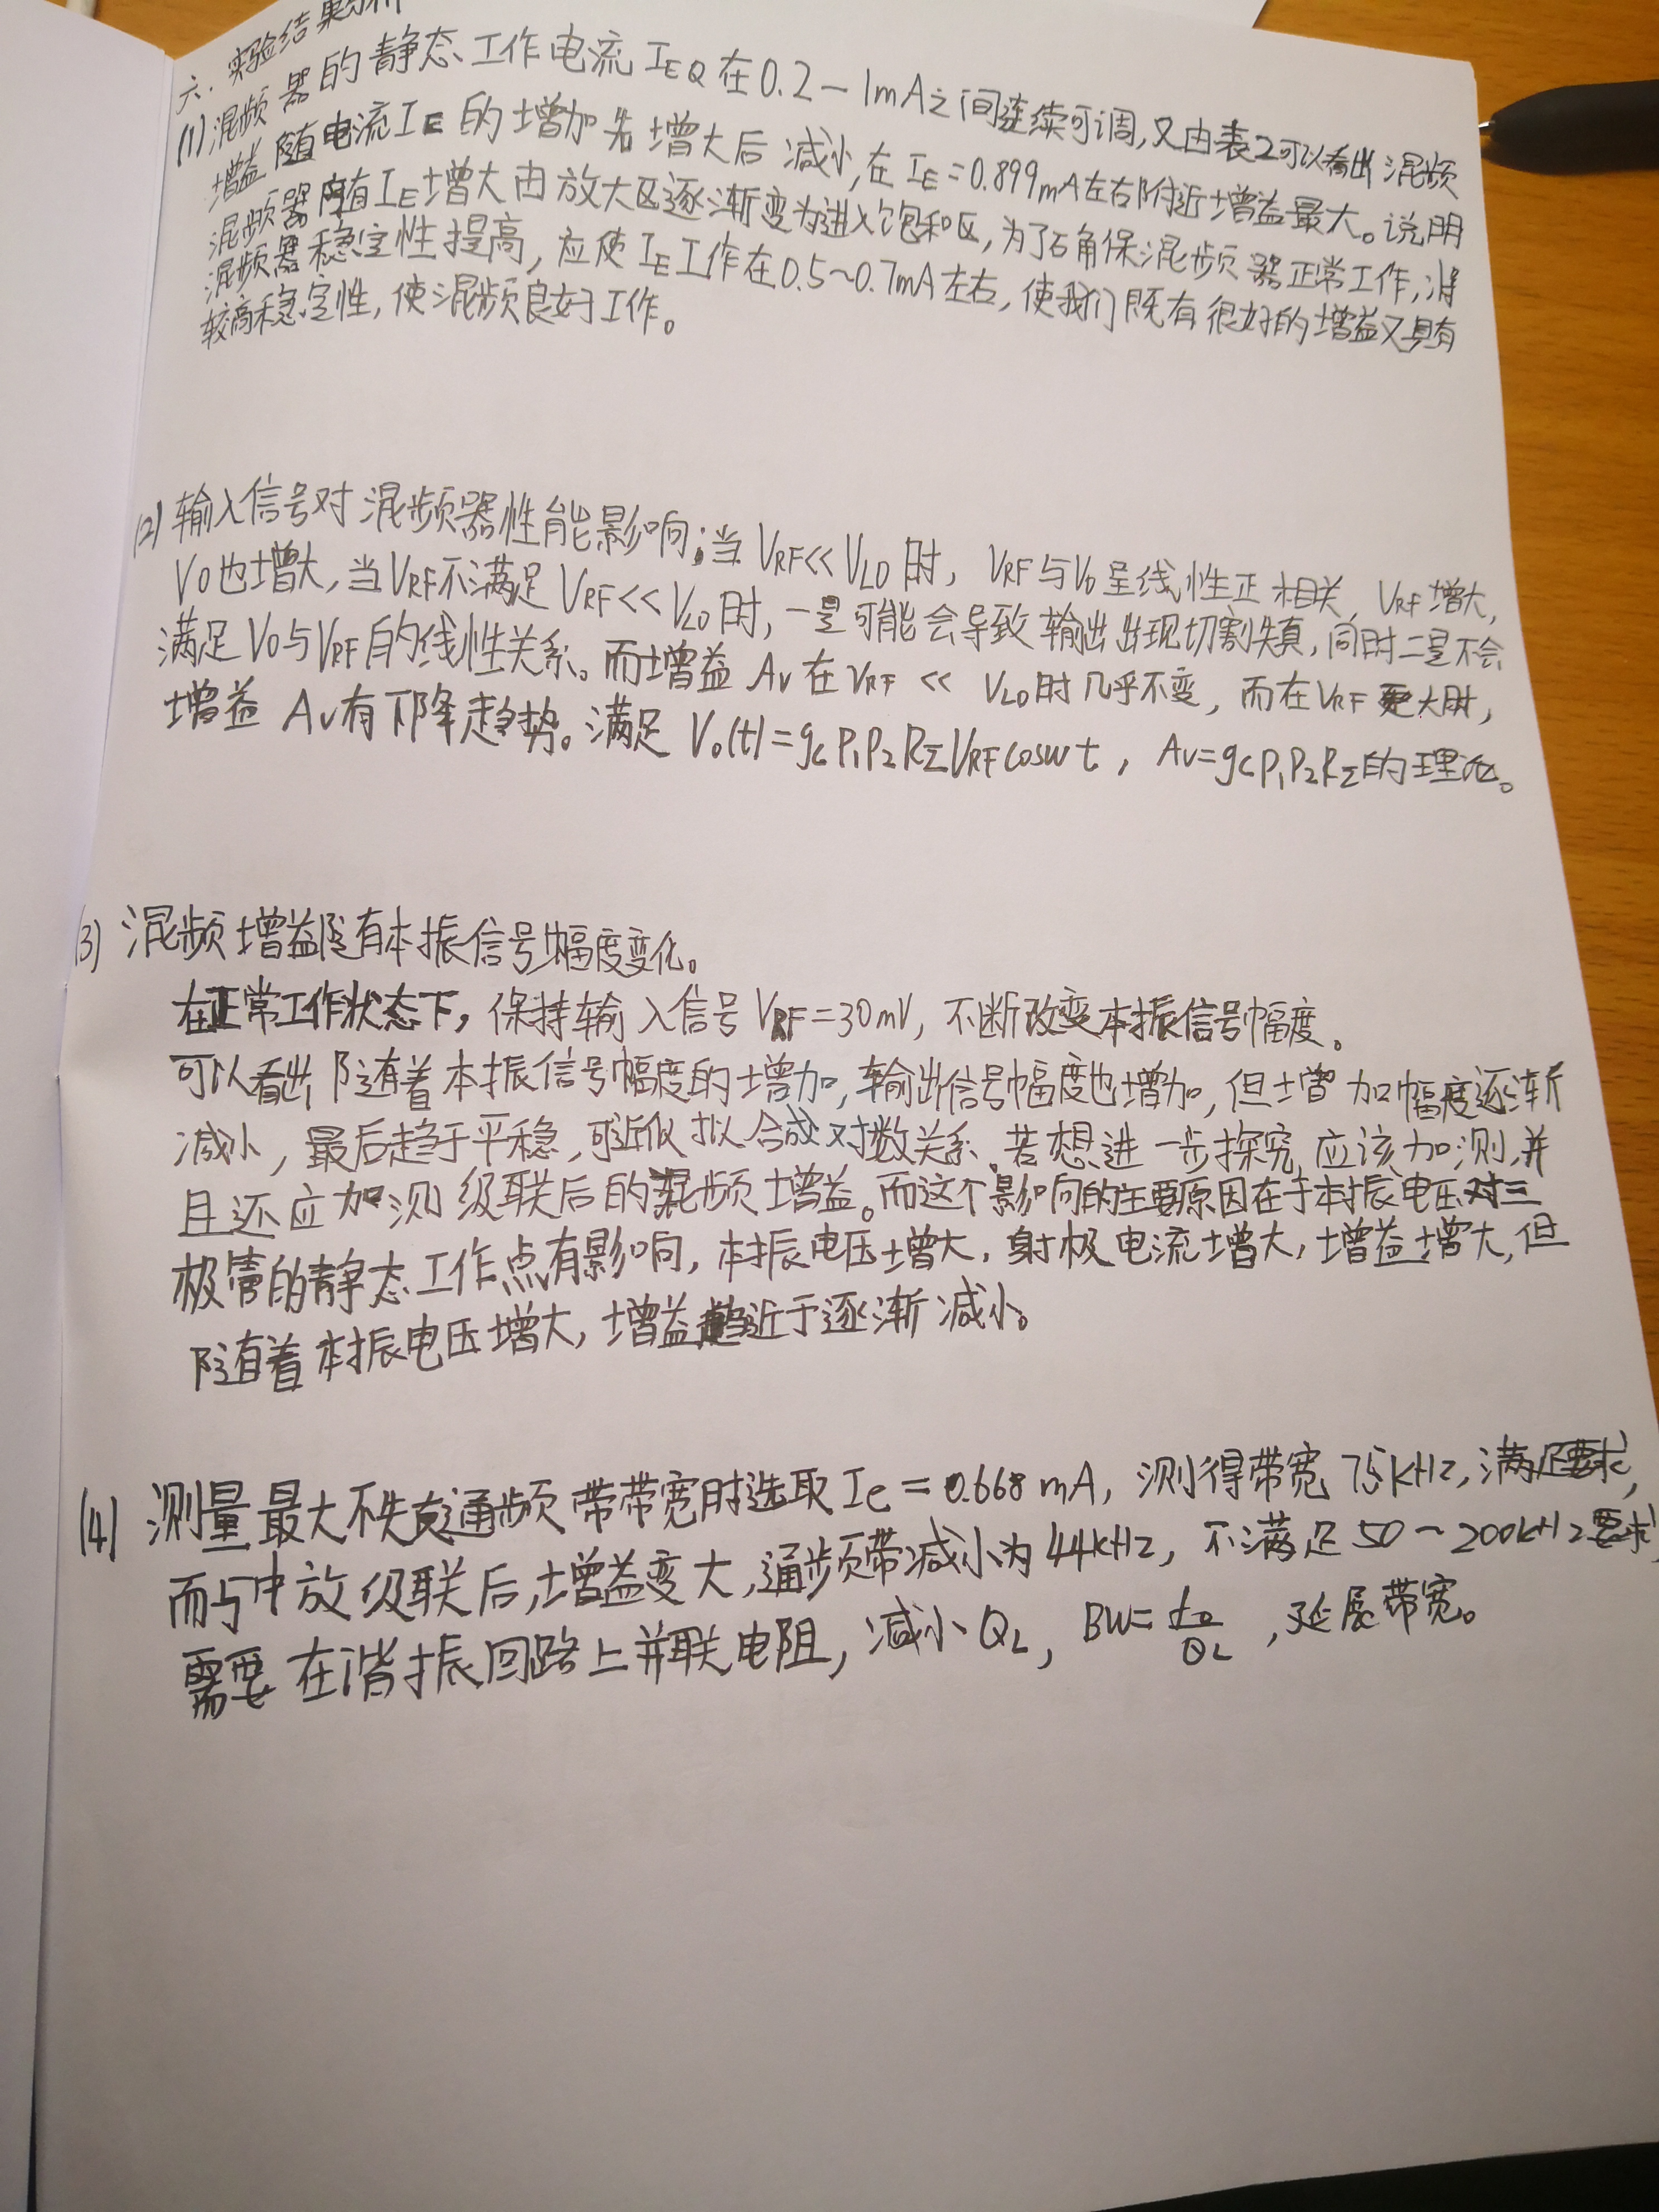 六.实验结果分析
(1)混频器的静态工作电流IEQ在0.2-1mA之间连续可调,又由表2可以看出混频
增益随电流IE的增加先增大后减小,在IE=0.899mA左右附近增益最大。说明
混频器随IE增大由放大区逐渐变为进入饱和区,为了确保混频器正常工作,
混频器稳定性提高,应使IE工作在0.5~0.7mA左右,使我们既有很好的增益又具有
较高稳定性,使混频良好工作。
(2)输入信号对混频器性能影响;当VRF<<VLO时,VRF与Vo呈线性正相关,VRF增大,
Vo也增大,当VRF不满足VRF<<VLO时,一是可能会导致输出出现切割失真,同时二是不会
满足Vo与VRF的线性关系。而增益Av在VRF<<VLO时几乎不变,而在VRF更大时,
增益Av有下降趋势。满足Vo(t)=gcP1P2RΣVRFcoswt,Av=gcP1P2RΣ的理论。
(3)混频增益随本振信号幅度变化。
在正常工作状态下,保持输入信号VRF=30mV,不断改变本振信号幅度。
可以看出随着本振信号幅度的增加,输出信号幅度也增加,但增加幅度逐渐
减小,最后趋于平稳,可近似拟合成对数关系.若想进一步探究,应该加测,并
且还应加测级联后的混频增益。而这个影响的主要原因在于本振电压对三
极管的静态工作点有影响,本振电压增大,射极电流增大,增益增大,但
随着本振电压增大,增益趋近于逐渐减小。
(4)测量最大不失真通频带带宽时选取Ie=0.668mA,测得带宽75kHz,满足要求,
而与中放级联后,增益变大,通频带减小为44kHz,不满足50~200kHz要求,
需要在谐振回路上并联电阻,减小QL,BW=fo/QL,延展带宽。